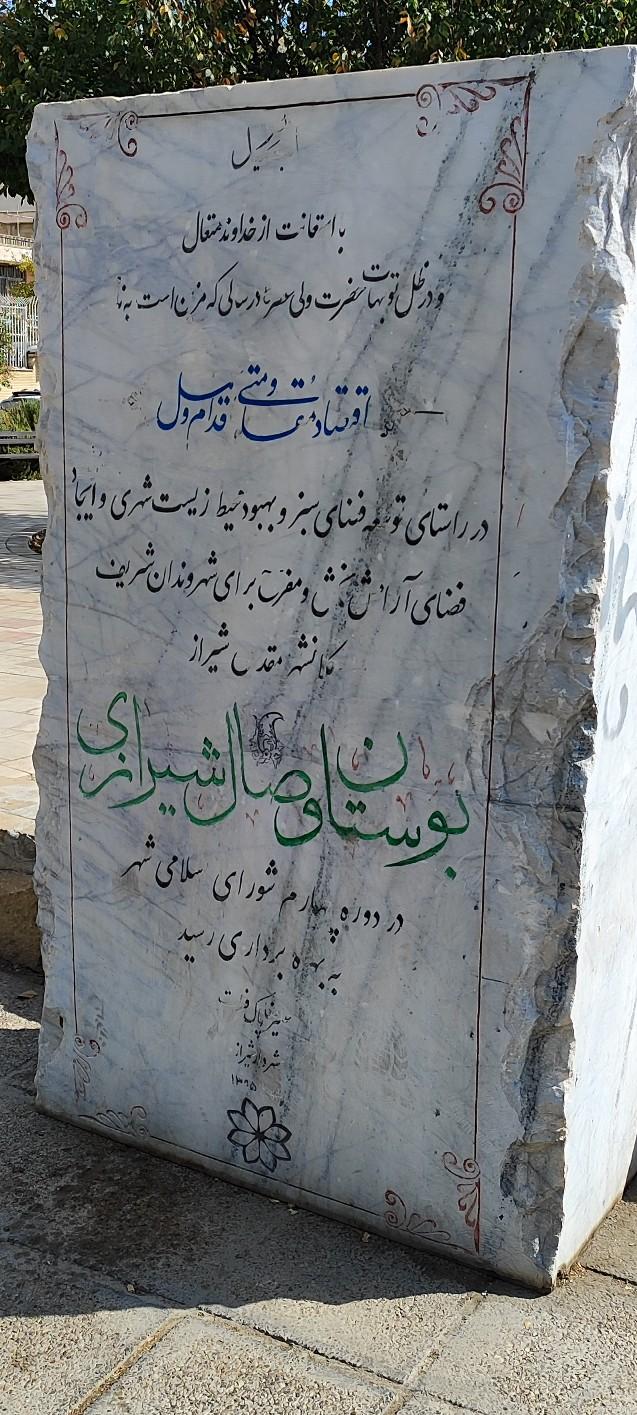 با استعانت از خداوند متعال
و در ظل توجهات حضرت ولی عصر در سالی که مزین است به نام
اقتصاد مقاومتی اقدام و عمل
در راستای توسعه فضای سبز و بهبود محیط زیست شهری و ایجاد
فضای آرامش بخش و مفرح برای شهروندان شریف
کلانشهر مقدس شیراز
بوستان وصال شیرازی
در دوره چهارم شورای اسلامی شهر
به بهره برداری رسید
علیرضا پاک فطرت
شهردار شیراز
۱۳۹۵